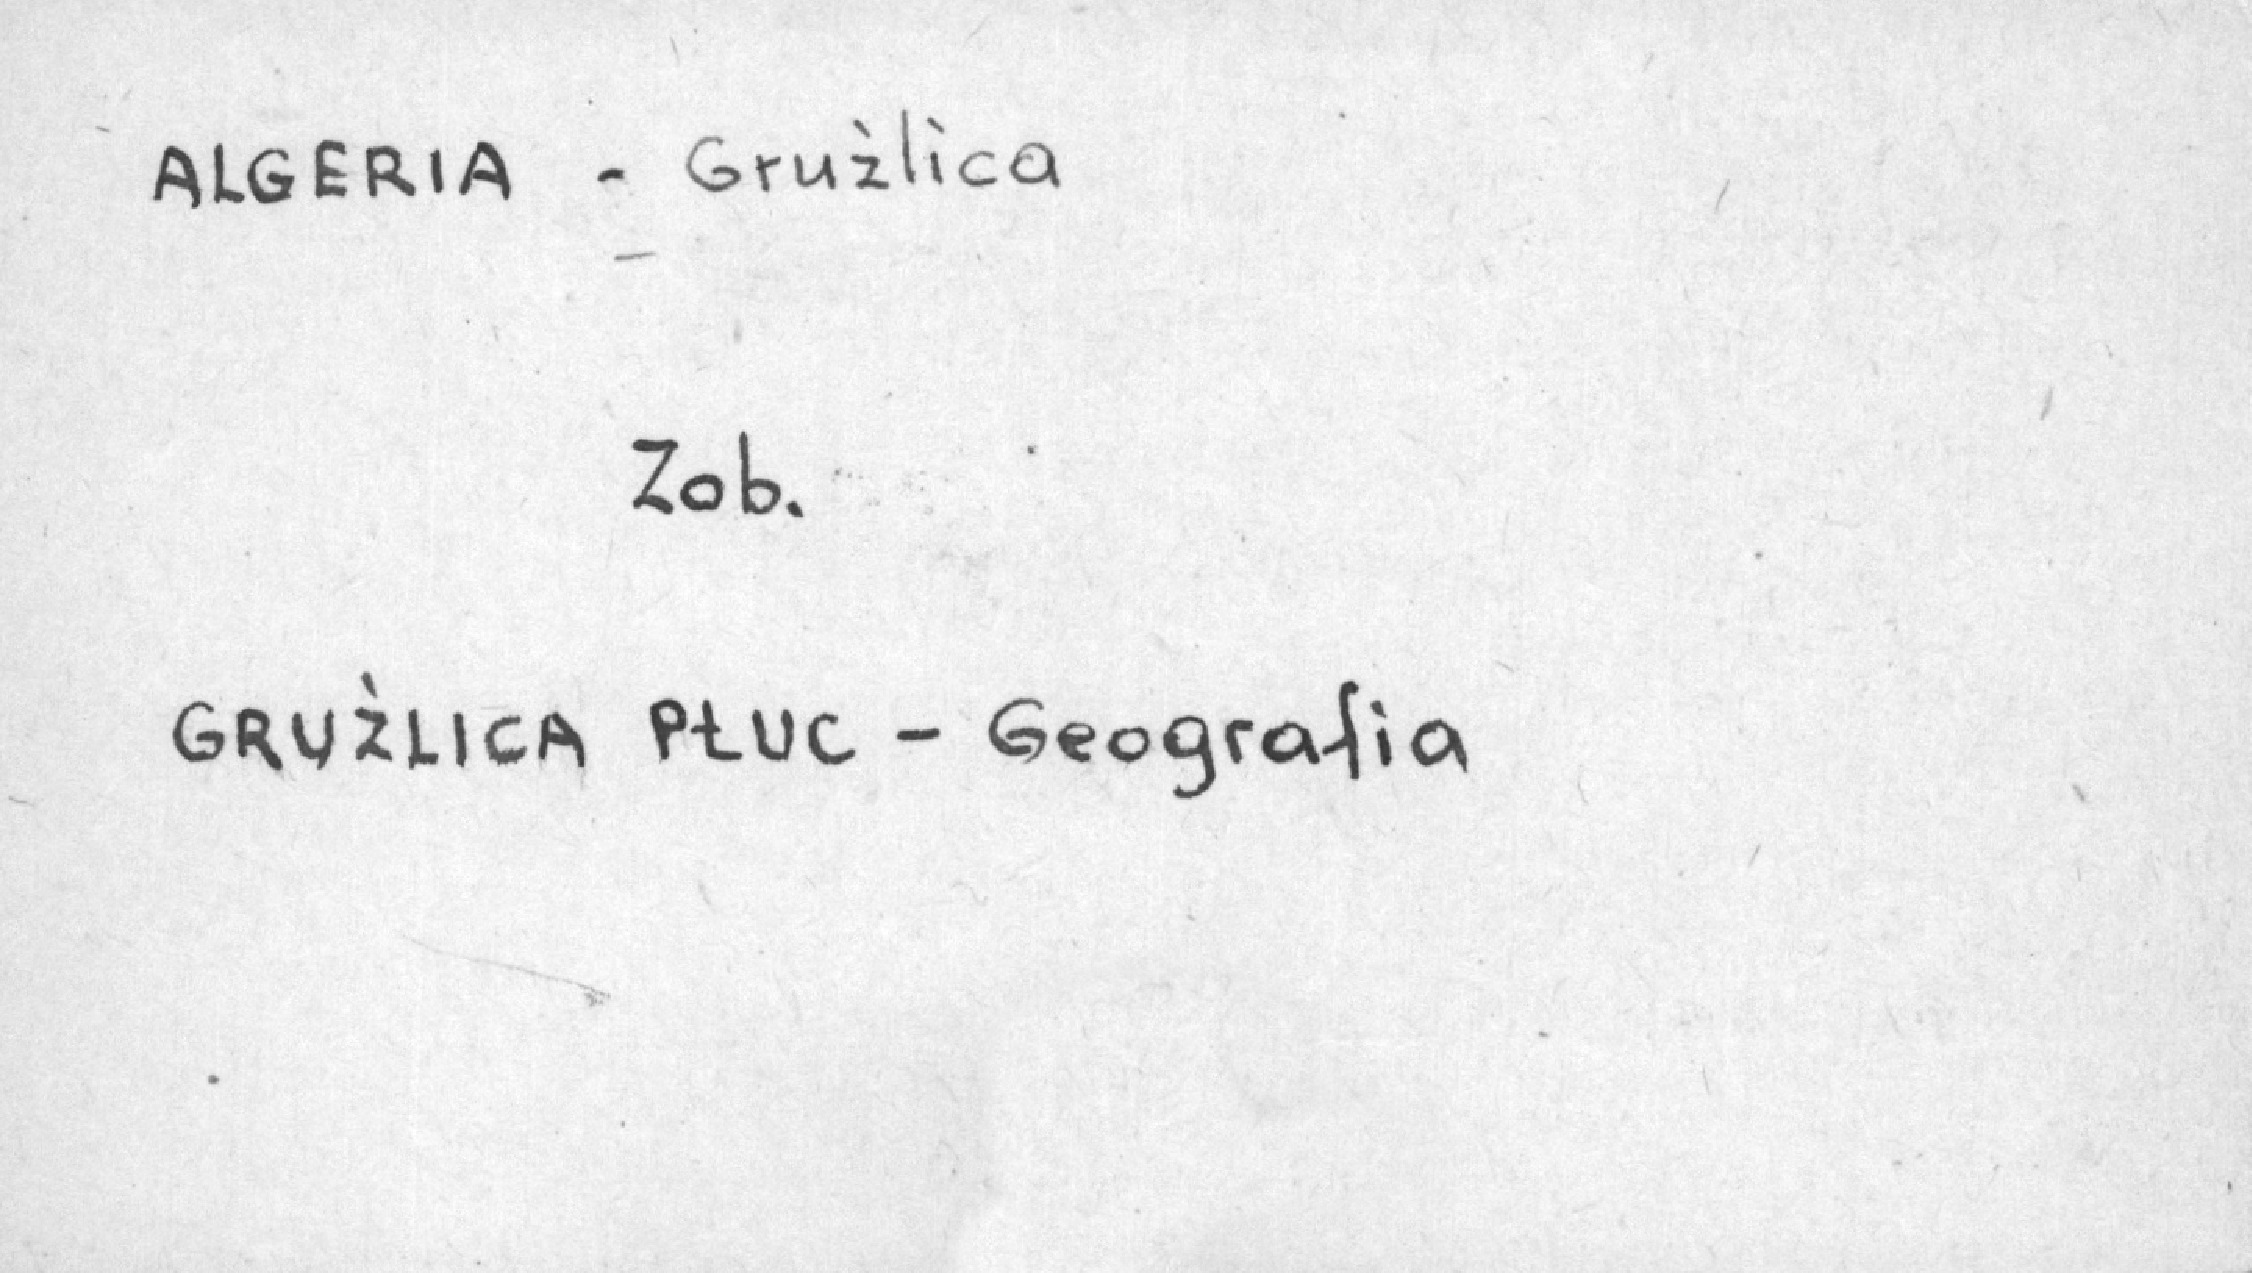 ALGERIA - Gruźlica
Zob.
GRUŹLICA PŁUC - Geografia